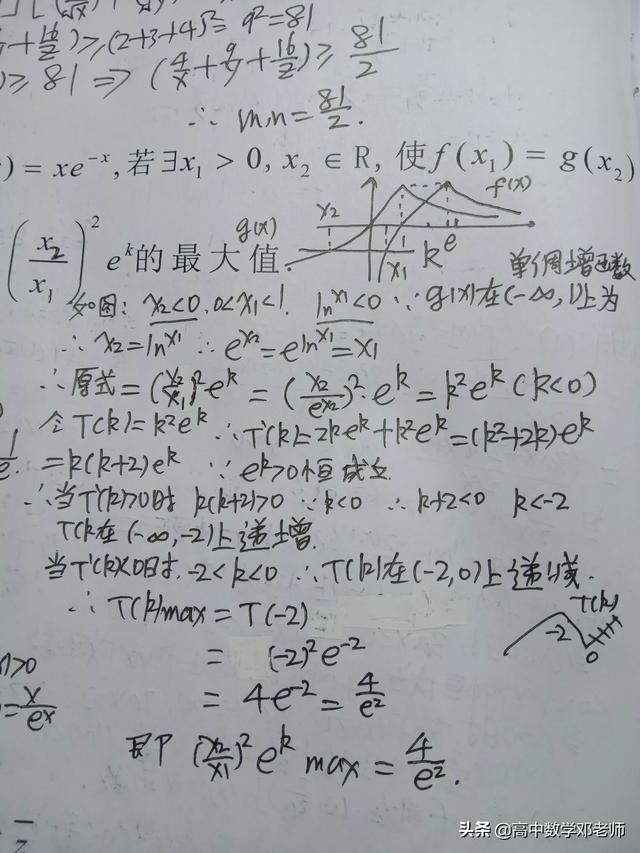 + 16/z) ≥ (2+3+4)² = 9² = 81
≥ 81 ⇒ (4/x + 9/y + 16/z) ≥ 81/2
∴ min = 81/2.
) = xe^{-x}, 若∃x₁ > 0, x₂ ∈ R, 使f(x₁) = g(x₂)
f(x)
g(x)
x₂
x₁
k
e
(x₂/x₁)² e^k的最大值.
单调增函数
如图: x₂<0, 0<x₁<1. ln^{x₁}<0 ∵ g(x)在(-∞,1)上为
∴ x₂=ln^{x₁} ∴ e^{x₂}=e^{ln^{x₁}}=x₁
∴原式=(x₂/x₁)²e^k = (x₂/e^{x₂})²·e^k = k²e^k (k<0)
令T(k)=k²e^k ∴T'(k)=2ke^k+k²e^k=(k²+2k)e^k
1/e.
=k(k+2)e^k ∵ e^k>0恒成立
∴当T'(k)>0时 k(k+2)>0 ∵k<0 ∴ k+2<0 k<-2
T(k在(-∞,-2)上递增.
当T'(k)<0时. -2<k<0 ∴T(k)在(-2,0)上递减.
∴ T(k)max = T(-2)
T(k)
-2
0
= (-2)²e^{-2}
>0
= 4e^{-2} = 4/e²
= x/e^x
即 (x₂/x₁)² e^k max = 4/e².
头条 @高中数学邓老师